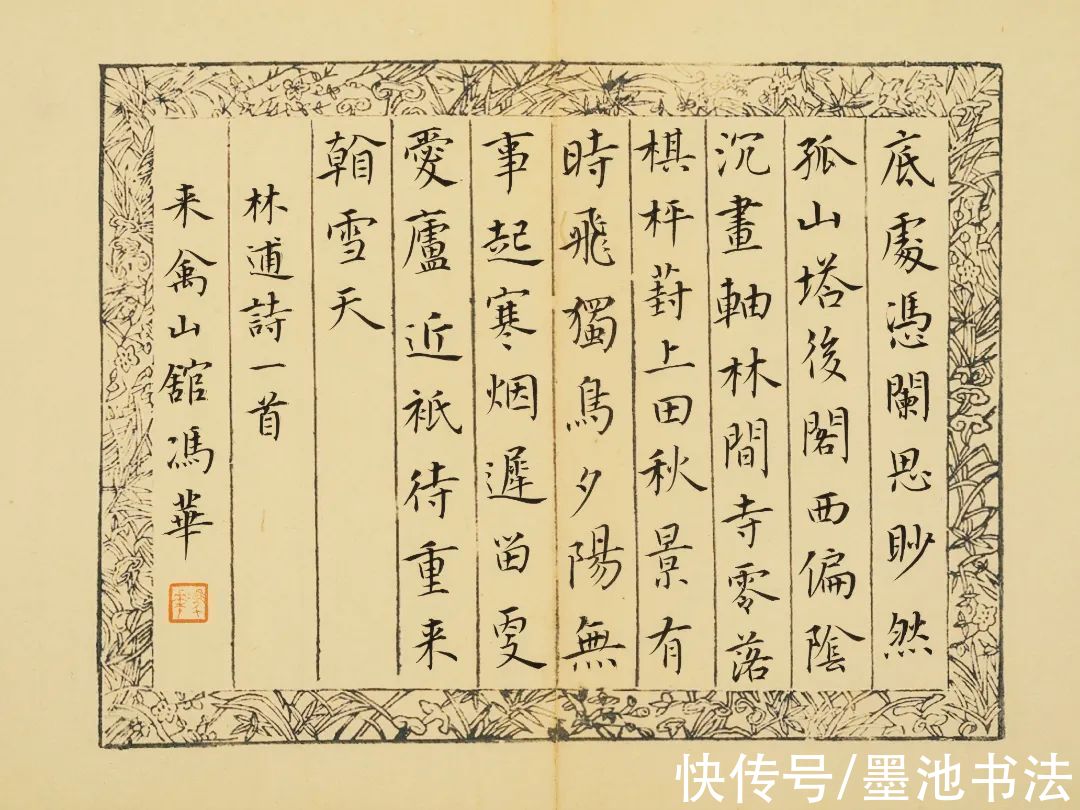 底處憑闌思眇然
孤山塔後閣西偏陰
沉畫軸林間寺零落
棋枰葑上田秋景有
時飛獨鳥夕陽無
事起寒烟遲留更
愛廬近祇待重来
看雪天
林逋詩一首
来禽山舘馮華
快传号/墨池书法